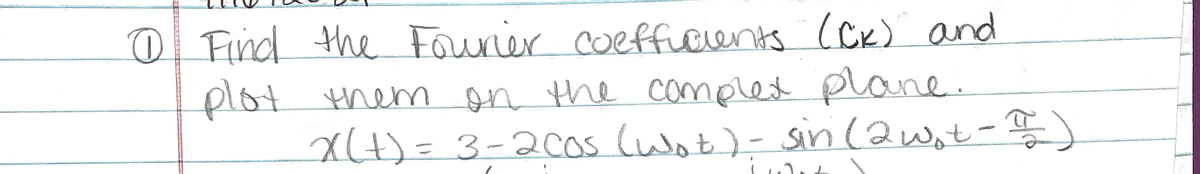 ① Find the Fourier coefficients (Ck) and
plot them on the complex plane.
x(t) = 3 - 2cos (ω₀t) - sin (2ω₀t - π/2)